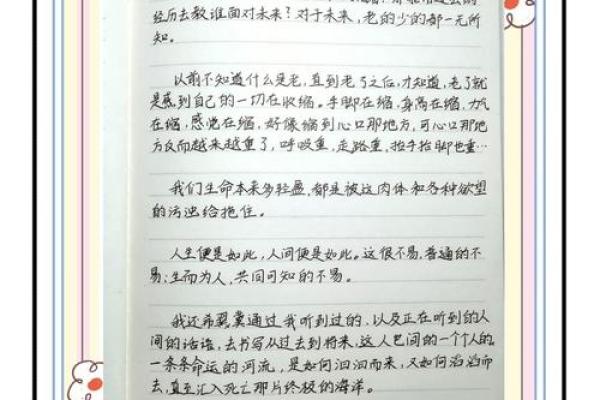 经历去教谁面对未来？对于未来，老的少的都一无所
知。
以前不知道什么是老，直到老了之后，才知道，老了就
是感到自己的一切在收缩。手脚在缩，身高在缩，力气
在缩，感觉在缩，好像缩到心口那地方，可心口那地
方反而越来越重了，呼吸重，走路重，抬手抬脚也重…
我们生命本来多轻盈，都是被这肉体和各种欲望
的污浊给拖住。
人生便是如此，人间便是如此。这很不易，普通的不
易；生而为人，共同可知的不易。
我还希冀通过我听到过的，以及正在听到的人
间的话语，去书写从过去到将来，这人世间的一个个人的，
一条条命运的河流，是如何汩汩而来，又如何滔滔而
去，直至汇入死亡那片终极的海洋。